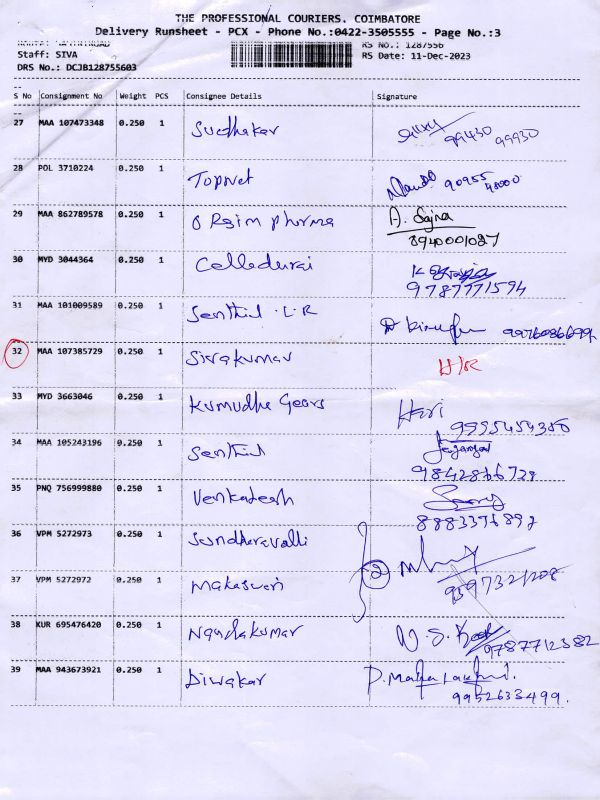 THE PROFESSIONAL COURIERS. COIMBATORE
Delivery Runsheet - PCX - Phone No.:0422-3505555 - Page No.:3
RS No.: 1287556
Staff: SIVA RS Date: 11-Dec-2023
DRS No.: DCJB128755603
S No Consignment No Weight PCS Consignee Details Signature
27 MAA 107473348 0.250 1 Sudhakar 99430 99930
28 POL 3710224 0.250 1 Topnet 90955 48000
29 MAA 862789578 0.250 1 pharma A. Sajna
8940001087
30 MYD 3044364 0.250 1 Celladurai K
9787771594
31 MAA 101009589 0.250 1 Senthil .L.R
32 MAA 107385729 0.250 1 Sivakumar
33 MYD 3663046 0.250 1 Kumudha Gears Hari
34 MAA 105243196 0.250 1 Senthil
9842866728
35 PNQ 756999880 0.250 1 Venkatesh
8883376892
36 VPM 5272973 0.250 1 Sundharavalli
2
37 VPM 5272972 0.250 1 Makaswari
38 KUR 695476420 0.250 1 Nandakumar N.S.
9787712382
39 MAA 943673921 0.250 1 Diwakar P. Maha Laxmi.
9952633499.